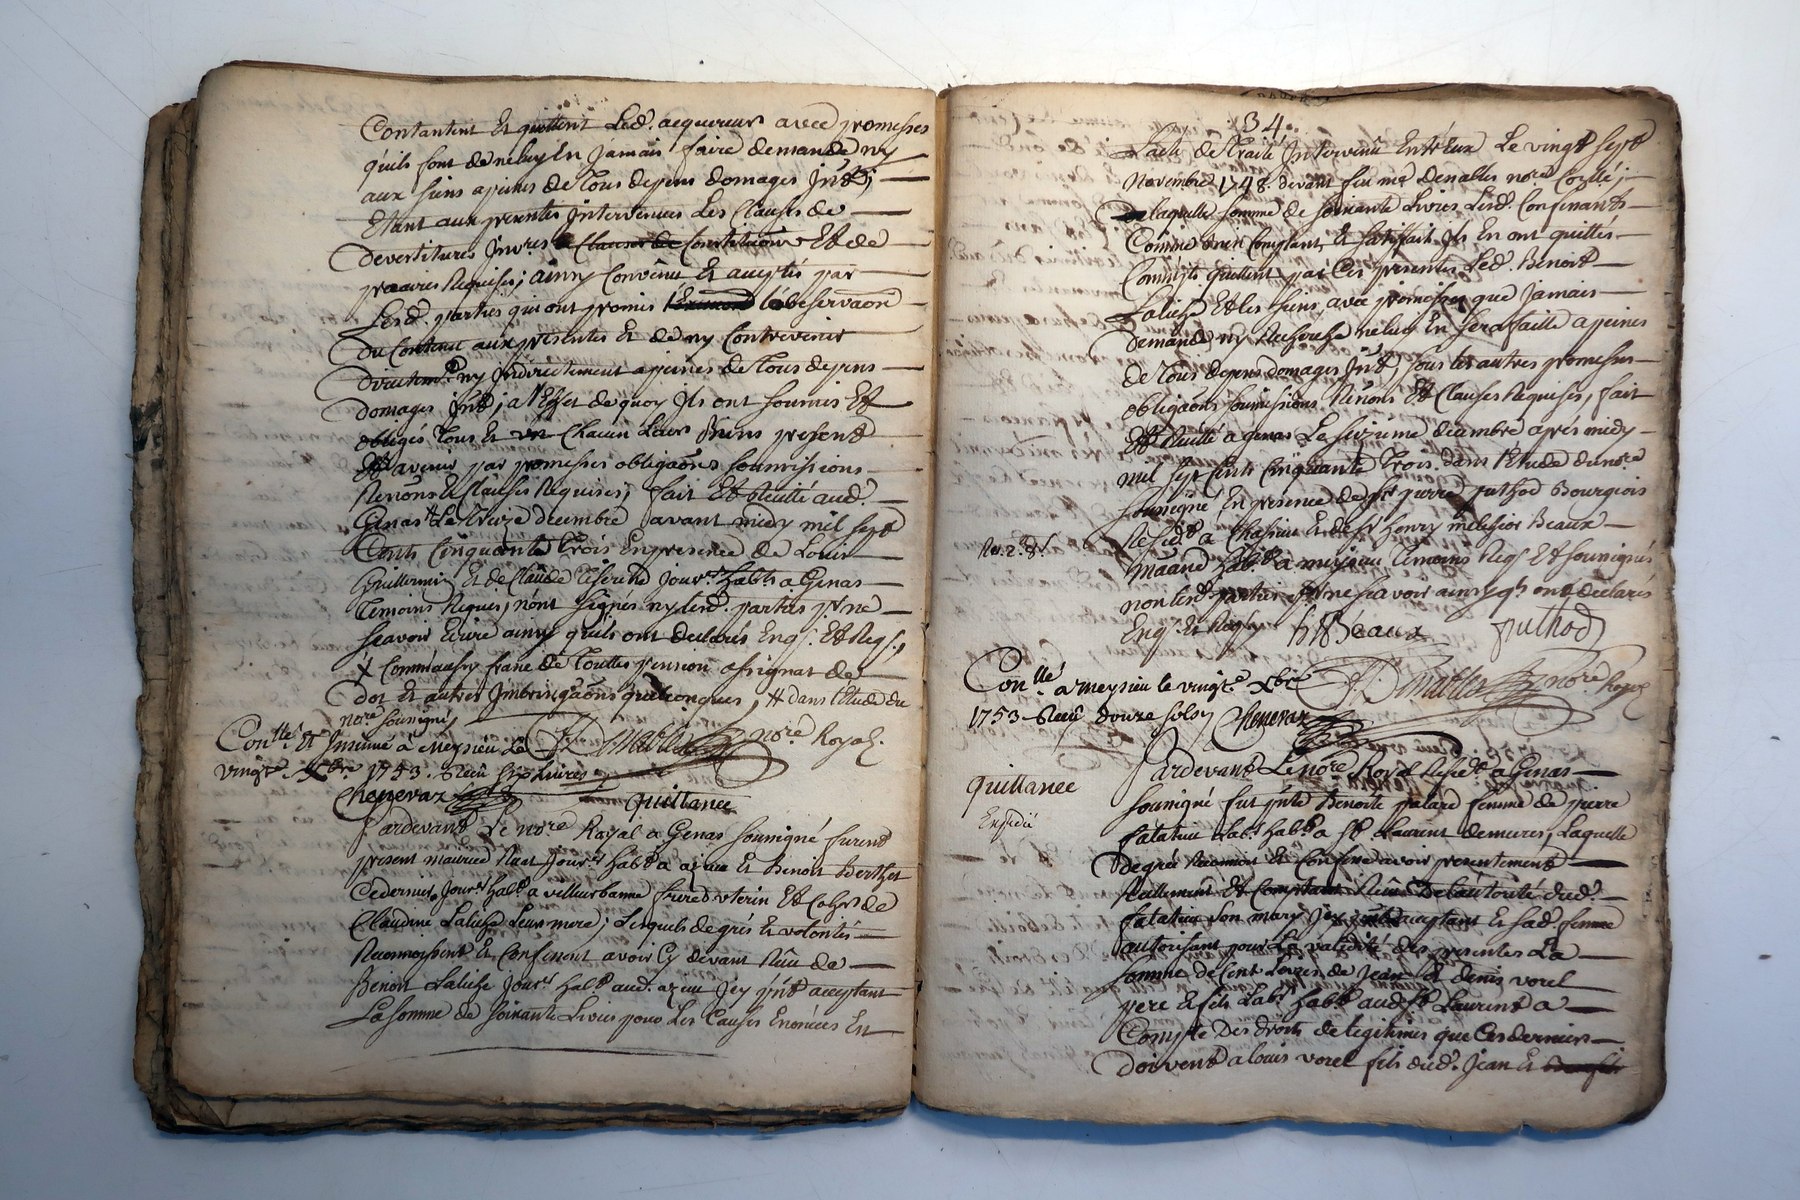 Contantent Et quittent Led. acquereur avec promesses
quils font de ne luy En Jamais faire demande ny
aux siens a peines de Tous depens domages Intz;
Etant aux presentes Intervenues Les Clauses de
devertitures Invres Constitution Et de
preaires Requises; ainsy Convenu Et accepté par
Lesd. parties qui ont promis l'observaon
Du Contenu aux presentes Et de ny Contrevenir
Directemt ny Indirectement a peines de Tous depens
domages Intz; a l'Effet de quoy Ils ont soumis Et
obligés Tous Et Chacun Leurs Biens presents
Et avenir par promesses obligaons soumissions
Renons Et Clauses Requises; fait Et Recitté aud.
Genas Le Treize decembre avant midy mil sept
Cents Cinquante Trois En presence de Louis
Guillermin Et de Claude Tisserand Jourr habts a Genas
Temoins Requis, n'ont signés ny lesd. parties pr ne
sçavoir Ecrire ainsy quils ont declarés Enqs. Et Reqs.,
X Comm'aussy franc de Touttes pension assignat de
Dot Et autres Imbringaons quelconques, # dans l'Etude du
nore soussigné,
Conllé Et Insinué à Meysieu Le
vingte Xbre 1753. Reçu six Livres
nore Royal.
Chenevaz
quittance
Pardevant Le nore Royal a Genas soussigné furent
present maurice Jourr habt a azieu Et Benoit Berthet
Ce dernier Jourr habt a villeurbanne freres uterin Et Cohrs de
Claudine Laliche Leur mere; Lesquels de grés Et volontés
Reconnoissent Et Confessent avoir Cy devant Reçu de
Benoit Laliche Jourr habt aud. azieu Icy pnt acceptant
La somme de soixante Livres pour Les Causes Enoncées En
34.
L'acte de Traité Intervenu Entr'Eux Le vingt sept
Novembre 1748. devant feu me denalles nore Conllé;
De laquelle somme de soixante Livres Lesd. Confessants
Comme bien Comptant Et satisfait Ils En ont quittés
Comm'ils quittent par Ces presentes Led. Benoit
Laliche Et les siens, avec promesses que Jamais
Demande ny Recherche ne luy En sera faitte a peines
de Tous depens domages Intz, sous les autres promesses
obligaons soumissions Renons Et Clauses Requises, fait
Et Recitté a Genas Le seizieme decembre après midy
mil sept Cents Cinquante Trois. dans l'Etude du nore
soussigné En presence de sr pierre puthod Bourgeois
Residt a Chassieu Et de sr henry melchior Beaux
Rs. 2. 8s.
maand habt a meysieu Temoins Reqs Et soussignés
non lesd. parties pr ne sçavoir ainsy qls ont declarés
Enqs. Et Reqs
h M Beaux puthod
Conllé a Meysieu le vingte Xbre
1753 Reçu douze sols
Chenevaz
nore Royal
quittance
Expedié
Pardevant Le nore Royal Residt a Genas
soussigné fut pnte Benoite palard femme de pierre
fatatieu Labr habt a St Laurent de mures, Laquelle
De gréé Reconnoit Et Confesse avoir presentement
Reellement Et Comptant Reçu De l'autorité dud.
fatatieu son mary Icy pnt acceptant Et sad. femme
autorisant pour La validité des presentes La
somme de Cent Livres de Jean Et denis vorel
pere Et fils Labrs habts aud. St Laurent a
Compte Des droits de legitimes que Ces derniers
Doivent a louis vorel fils dud. Jean Et